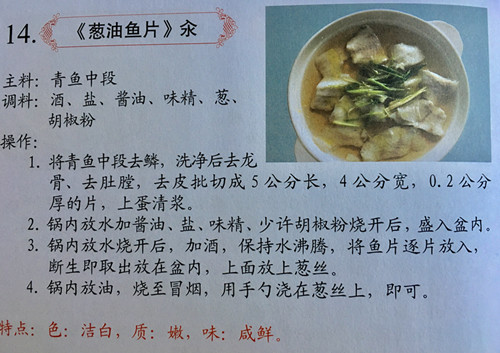 14. 《葱油鱼片》汆
主料：青鱼中段
调料：酒、盐、酱油、味精、葱、
胡椒粉
操作：
1. 将青鱼中段去鳞，洗净后去龙
骨、去肚膛，去皮批切成 5 公分长，4 公分宽，0.2 公分
厚的片，上蛋清浆。
2. 锅内放水加酱油、盐、味精、少许胡椒粉烧开后，盛入盆内。
3. 锅内放水烧开后，加酒，保持水沸腾，将鱼片逐片放入，
断生即取出放在盆内，上面放上葱丝。
4. 锅内放油，烧至冒烟，用手勺浇在葱丝上，即可。
特点：色：洁白，质：嫩，味：咸鲜。